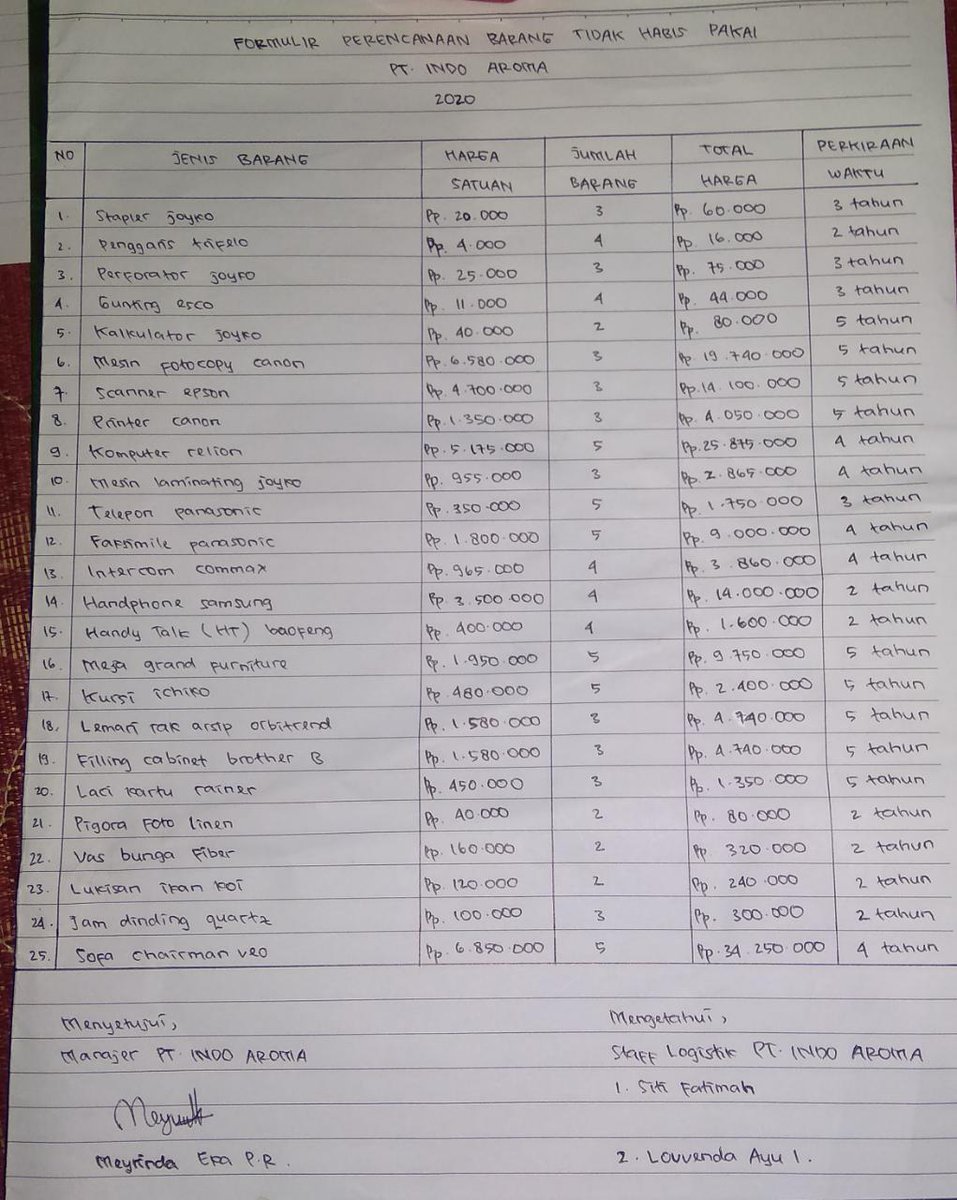 FORMULIR PERENCANAAN BARANG TIDAK HABIS PAKAI
PT. INDO AROMA
2020
NO JENIS BARANG HARGA SATUAN JUMLAH BARANG TOTAL HARGA PERKIRAAN WAKTU
1. Stapler joyko Rp. 20.000 3 Rp. 60.000 3 tahun
2. Penggaris trifelo Rp. 4.000 4 Rp. 16.000 2 tahun
3. Perforator joyko Rp. 25.000 3 Rp. 75.000 3 tahun
4. Gunting esco Rp. 11.000 4 Rp. 44.000 3 tahun
5. Kalkulator joyko Rp. 40.000 2 Rp. 80.000 5 tahun
6. Mesin fotocopy canon Rp. 6.580.000 3 Rp 19.740.000 5 tahun
7. Scanner epson Rp. 4.700.000 3 Rp. 14.100.000 5 tahun
8. Printer canon Rp. 1.350.000 3 Rp. 4.050.000 5 tahun
9. Komputer relion Rp. 5.175.000 5 Rp. 25.875.000 4 tahun
10. Mesin laminating joyko Rp. 955.000 3 Rp. 2.865.000 4 tahun
11. Telepon panasonic Rp. 350.000 5 Rp. 1.750.000 3 tahun
12. Faksimile panasonic Rp. 1.800.000 5 Rp. 9.000.000 4 tahun
13. Intercom commax Rp. 965.000 4 Rp. 3.860.000 4 tahun
14. Handphone samsung Rp. 3.500.000 4 Rp. 14.000.000 2 tahun
15. Handy Talk (HT) baofeng Rp. 400.000 4 Rp. 1.600.000 2 tahun
16. Meja grand furniture Rp. 1.950.000 5 Rp. 9.750.000 5 tahun
17. Kursi ichiko Rp. 480.000 5 Rp. 2.400.000 5 tahun
18. Lemari rak arsip orbitrend Rp. 1.580.000 3 Rp. 4.740.000 5 tahun
19. Filling cabinet brother B Rp. 1.580.000 3 Rp. 4.740.000 5 tahun
20. Laci kartu rainer Rp. 450.000 3 Rp. 1.350.000 5 tahun
21. Pigora foto linen Rp. 40.000 2 Rp. 80.000 2 tahun
22. Vas bunga fiber Rp. 160.000 2 Rp 320.000 2 tahun
23. Lukisan ikan koi Rp. 120.000 2 Rp. 240.000 2 tahun
24. Jam dinding quartz Rp. 100.000 3 Rp. 300.000 2 tahun
25. Sofa chairman veo Rp. 6.850.000 5 Rp. 34.250.000 4 tahun
Menyetujui, Mengetahui,
Manajer PT. INDO AROMA Staff Logistik PT. INDO AROMA
1. Siti Fatimah
Meyrinda Eka P.R. 2. Louvenda Ayu I.